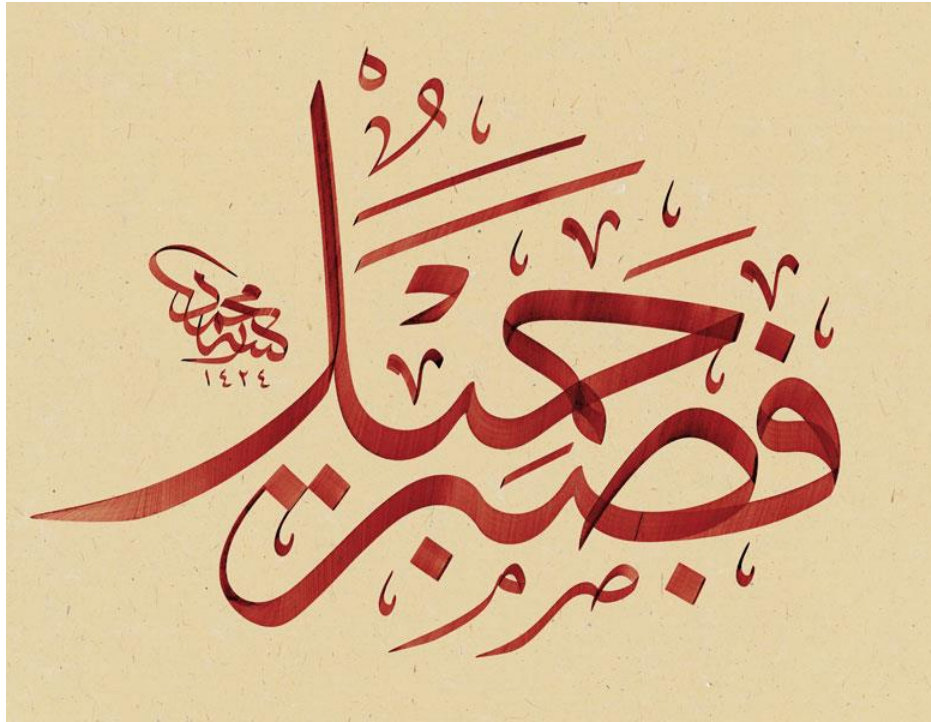 فَصَبْرٌ جَمِيلٌ
محمد
١٤٢٤